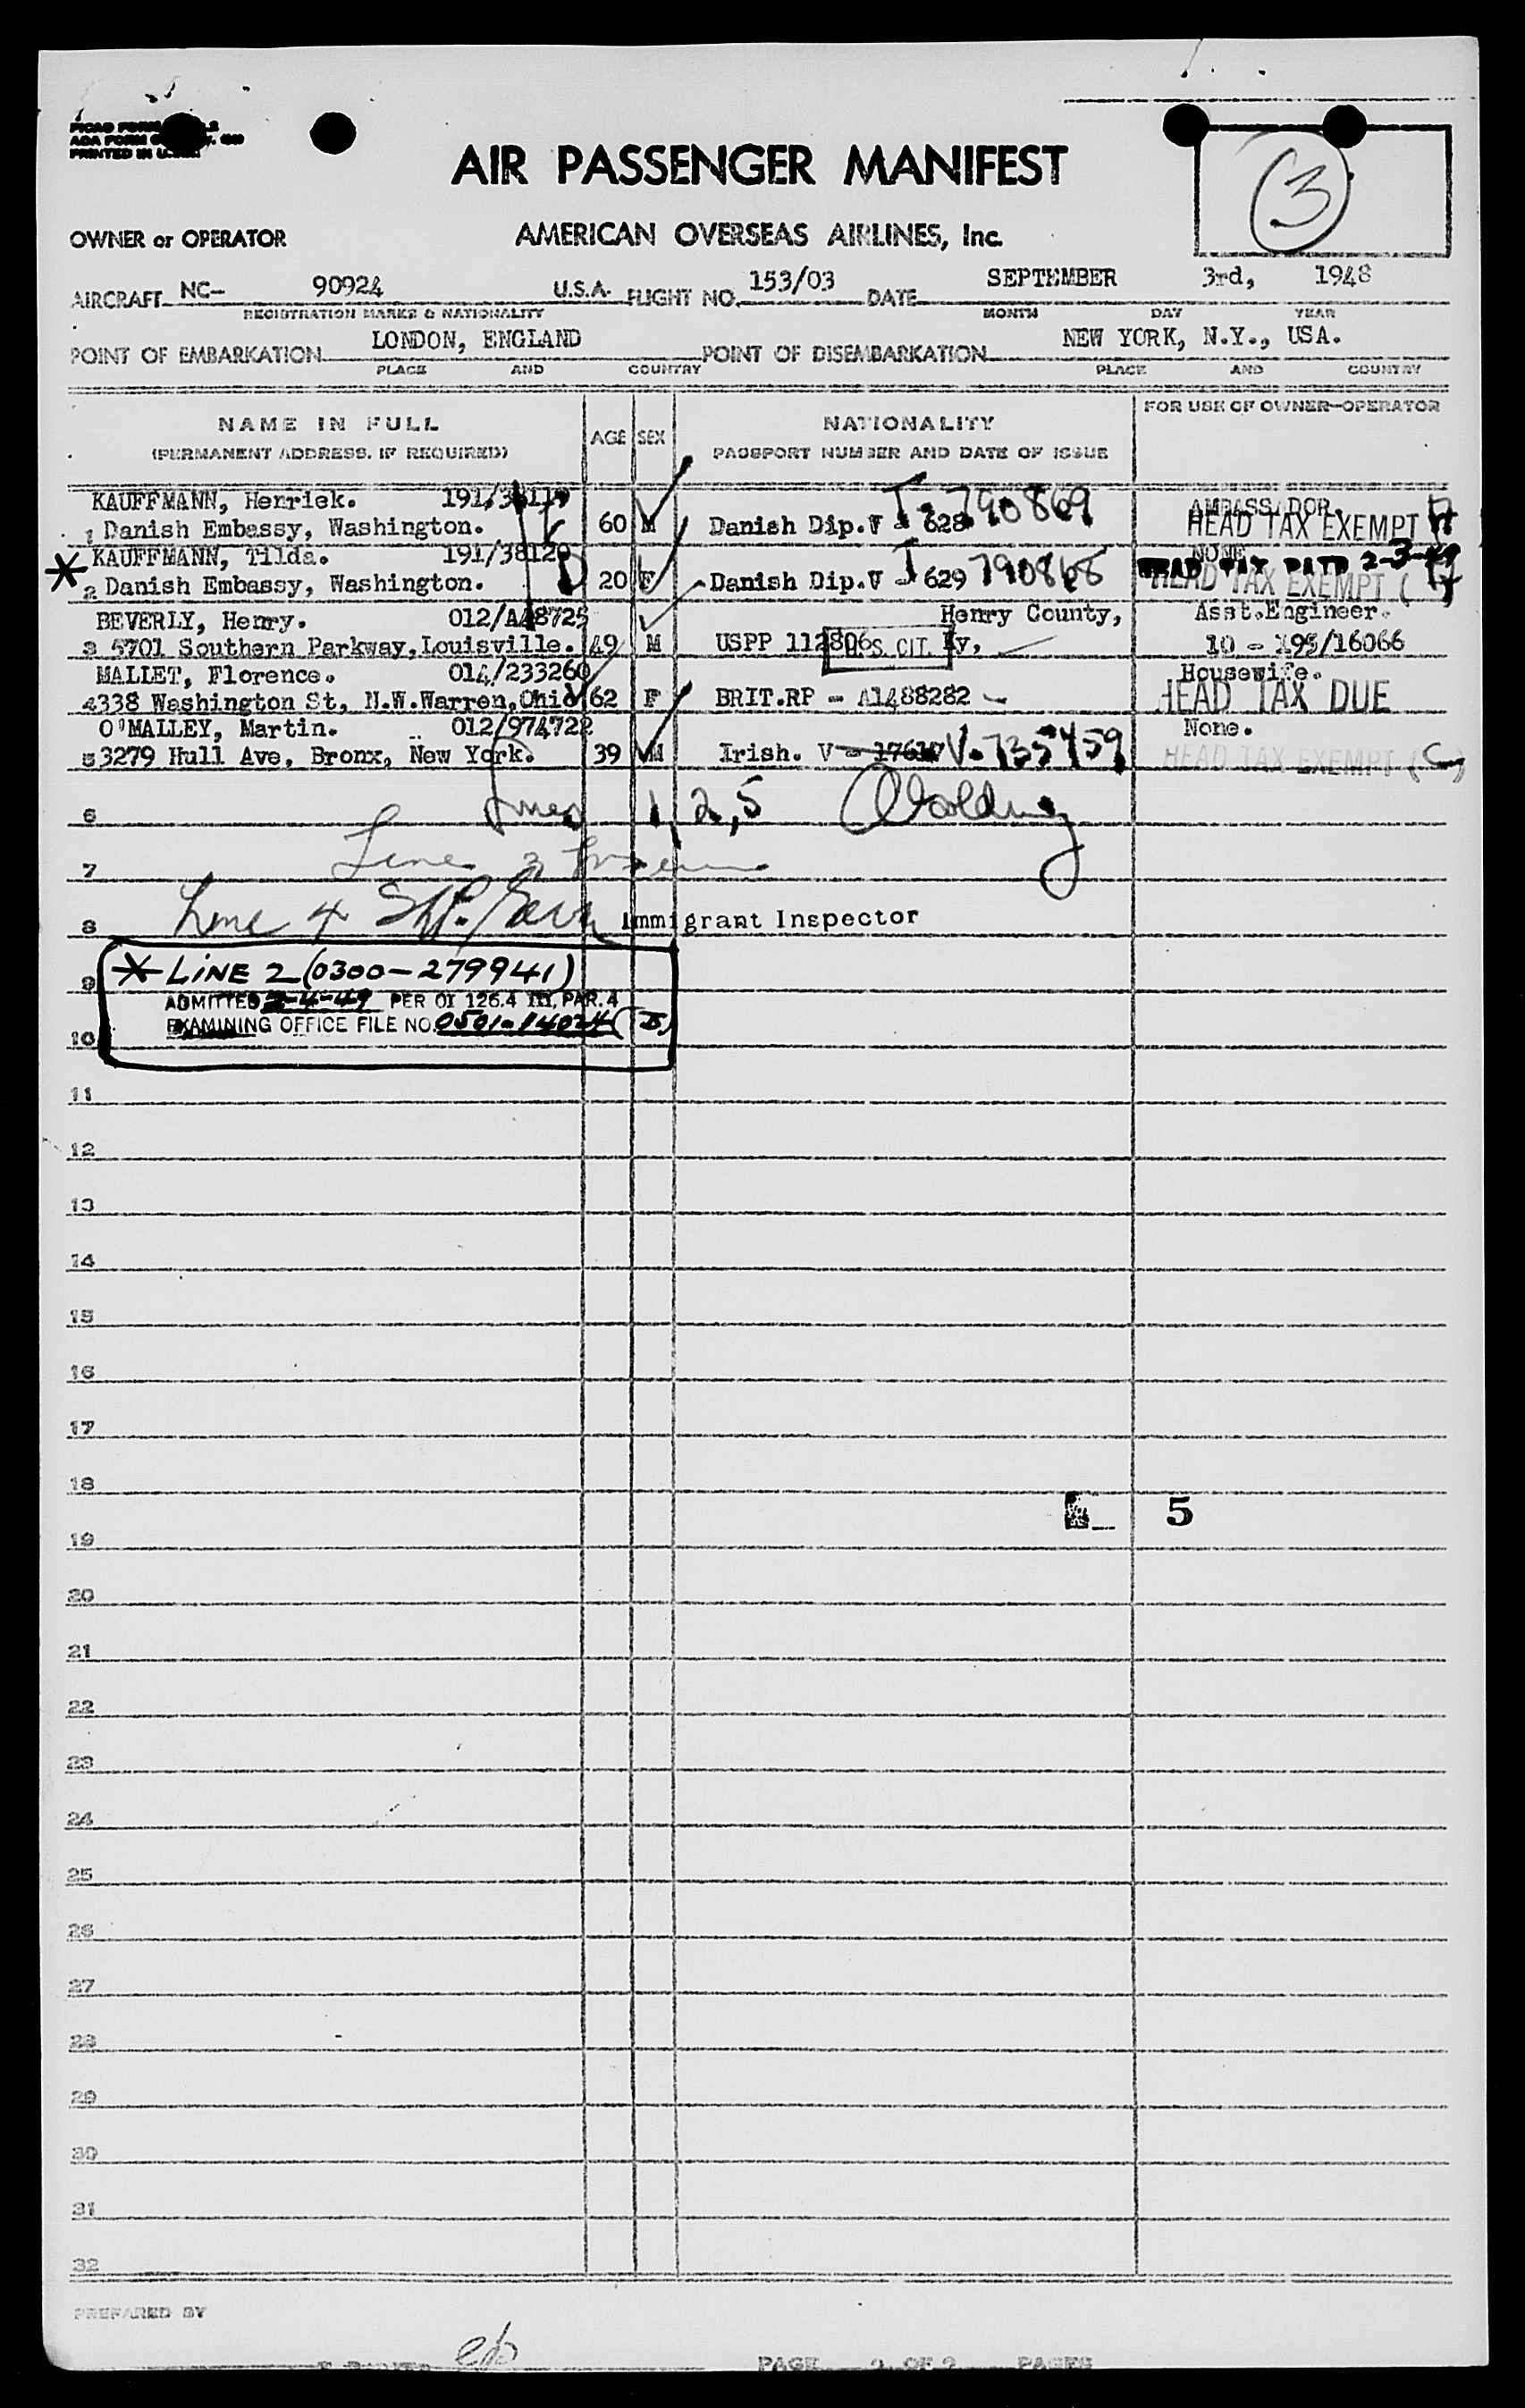 PRINTED IN U.S.A.
3
AIR PASSENGER MANIFEST
OWNER or OPERATOR AMERICAN OVERSEAS AIRLINES, Inc.
AIRCRAFT NC- 90924 U.S.A. FLIGHT NO. 153/03 DATE SEPTEMBER 3rd, 1948
REGISTRATION MARKS & NATIONALITY MONTH DAY YEAR
POINT OF EMBARKATION LONDON, ENGLAND POINT OF DISEMBARKATION NEW YORK, N.Y., USA.
PLACE AND COUNTRY PLACE AND COUNTRY
NAME IN FULL AGE SEX NATIONALITY FOR USE OF OWNER-OPERATOR
(PERMANENT ADDRESS, IF REQUIRED) PASSPORT NUMBER AND DATE OF ISSUE
KAUFFMANN, Henrick. 191/38119 AMBASSADOR.
1 Danish Embassy, Washington. 60 M Danish Dip.V - 628 790869 HEAD TAX EXEMPT
* KAUFFMANN, Tilda. 191/38120 NONE HEAD TAX PAID 2-3-49
2 Danish Embassy, Washington. 20 F Danish Dip.V - 629 HEAD TAX EXEMPT (
BEVERLY, Henry. 012/AA8725 Henry County, Asst.Engineer.
3 5701 Southern Parkway, Louisville. 49 M USPP 112806 U.S. CIT. Ky, 10 - 195/16066
MALLET, Florence. 014/233260 Housewife.
4 338 Washington St, N.W.Warren, Ohio 62 F BRIT.RP - A1488282 HEAD TAX DUE
O'MALLEY, Martin. 012/974722 None.
5 3279 Hull Ave, Bronx, New York. 39 M Irish. V - V-735459 HEAD TAX EXEMPT (C)
6 Lines 1, 2, 5
7 Line 3
8 Line 4 Immigrant Inspector
9 * LINE 2 (0300-279941)
ADMITTED 2-4-49 PER OI 126.4 III, PAR. 4
10 EXAMINING OFFICE FILE NO. 0501-14024
11
12
13
14
15
16
17
18
5
19
20
21
22
23
24
25
26
27
28
29
30
31
32
PREPARED BY
PAGE 2 OF 2 PAGES